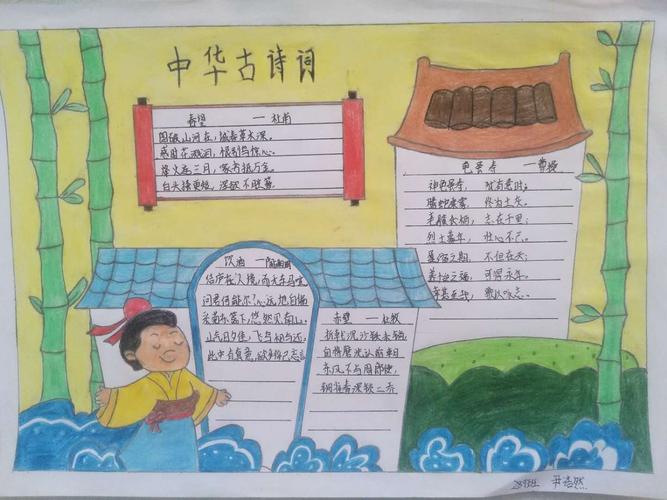 中华古诗词
春望 — 杜甫
国破山河在，城春草木深。
感时花溅泪，恨别鸟惊心。
烽火连三月，家书抵万金。
白头搔更短，浑欲不胜簪。
龟虽寿 — 曹操
神龟虽寿，犹有竟时；
腾蛇乘雾，终为土灰。
老骥伏枥，志在千里；
烈士暮年，壮心不已。
盈缩之期，不但在天；
养怡之福，可得永年。
幸甚至哉，歌以咏志。
饮酒 —陶渊明
结庐在人境，而无车马喧
问君何能尔？心远地自偏
采菊东篱下，悠然见南山。
山气日夕佳，飞鸟相与还，
此中有真意，欲辨已忘言
赤壁 — 杜牧
折戟沉沙铁未销
自将磨洗认前朝
东风不与周郎便，
铜雀春深锁二乔